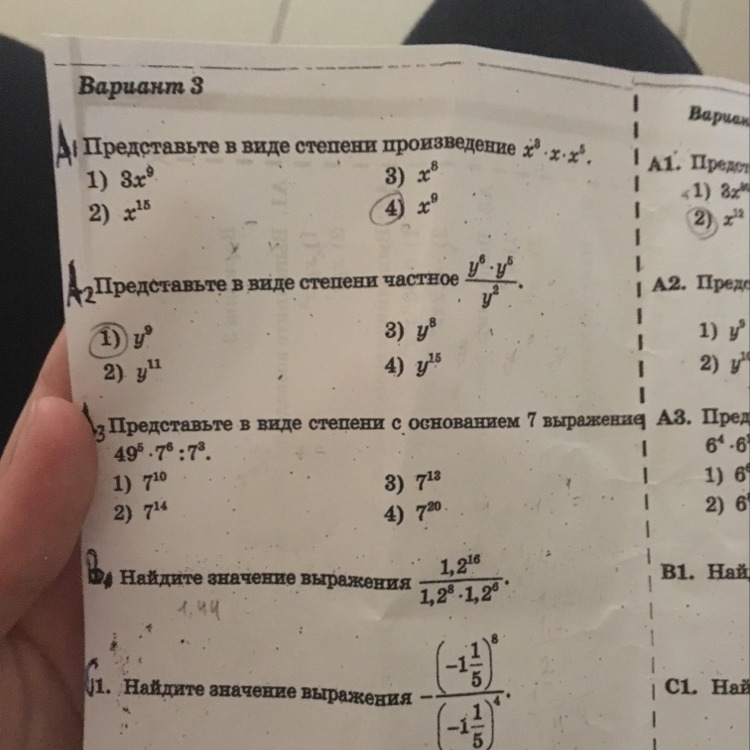 Вариант 3
А1 Представьте в виде степени произведение x³ · x · x⁵.
1) 3x⁹ 3) x⁸
2) x¹⁵ 4) x⁹
А2 Представьте в виде степени частное y⁶ · y⁵ / y².
1) y⁹ 3) y⁸
2) y¹¹ 4) y¹⁵
А3 Представьте в виде степени с основанием 7 выражение
49⁵ · 7⁶ : 7³.
1) 7¹⁰ 3) 7¹³
2) 7¹⁴ 4) 7²⁰
В1 Найдите значение выражения 1,2¹⁶ / 1,2⁸ · 1,2⁶.
1,44
С1. Найдите значение выражения −(−1 1/5)⁸ / (−1 1/5)⁴.
Вариан
А1. Предст
1) 3x
2) x¹²
А2. Предс
1) y⁵
2) y
А3. Пред
6⁴ · 6
1) 6
2) 6
В1. Най
С1. Най